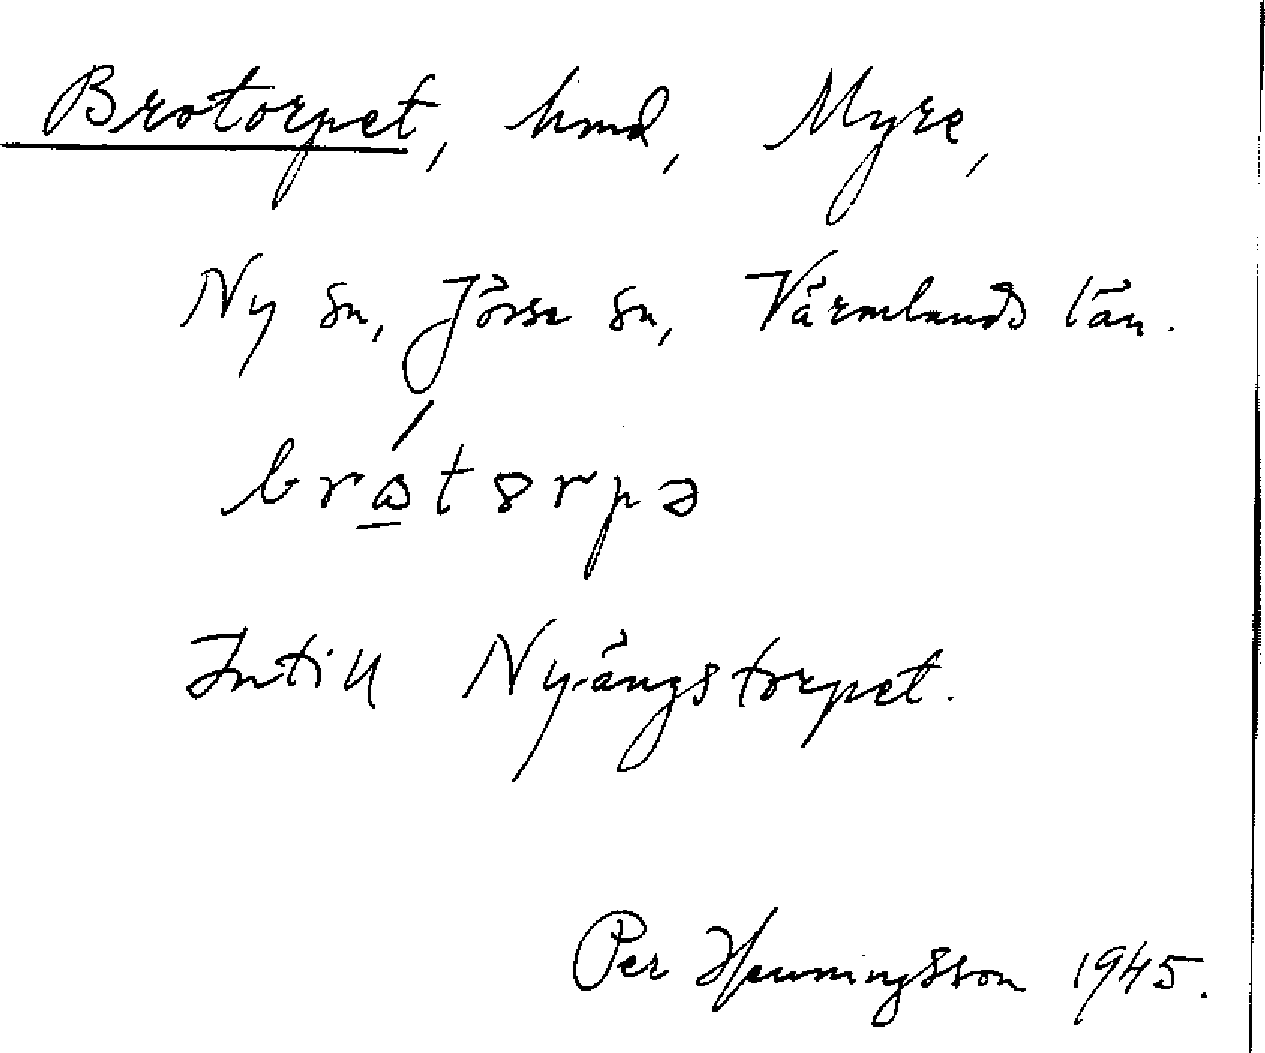 Brotorpet, hmd, Myre,
Ny sn, Jösse sn, Värmlands län.
brώ̲t8rpə
Intill Nyängstorpet.
Per Henningsson 1945.